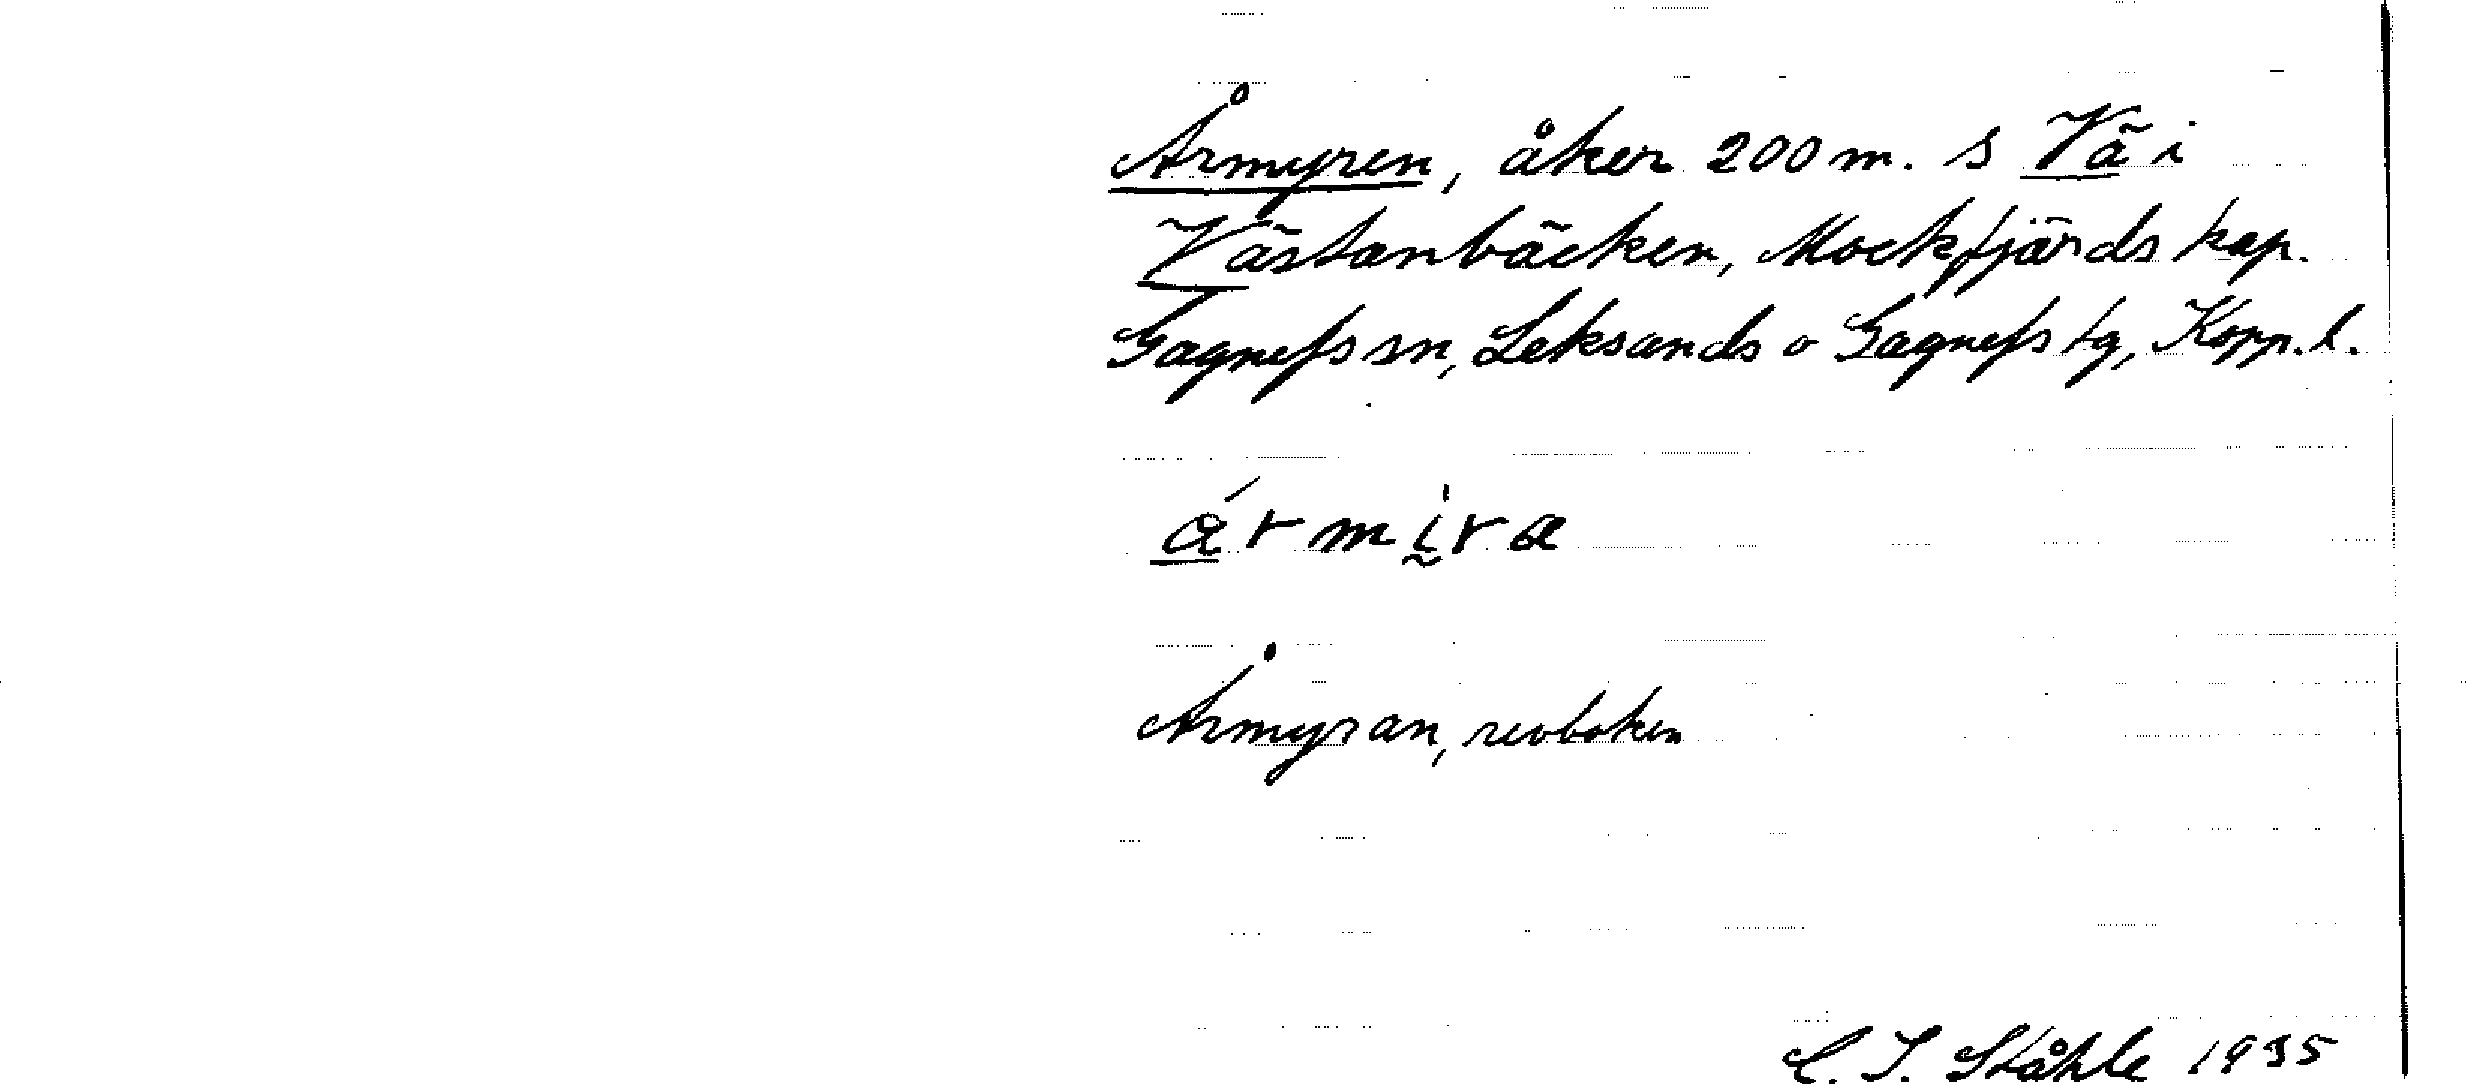 Årmyren, åker 200 m. s Vä i
Västanbäcken, Mockfjärds kap.
Gagnefs sn, Leksands o Gagnefs tg, Kopp. l.
a̲´rmḭra
Årmyran, revboken
C. I. Ståhle 1935